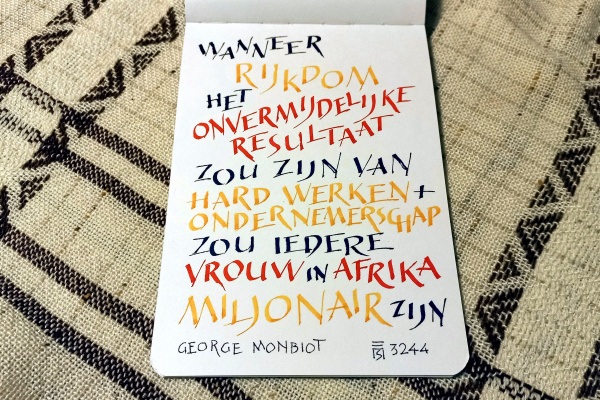 WANNEER
RIJKDOM
HET
ONVERMIJDELIJKE
RESULTAAT
ZOU ZIJN VAN
HARD WERKEN +
ONDERNEMERSCHAP
ZOU IEDERE
VROUW IN AFRIKA
MILJONAIR ZIJN
GEORGE MONBIOT 3244